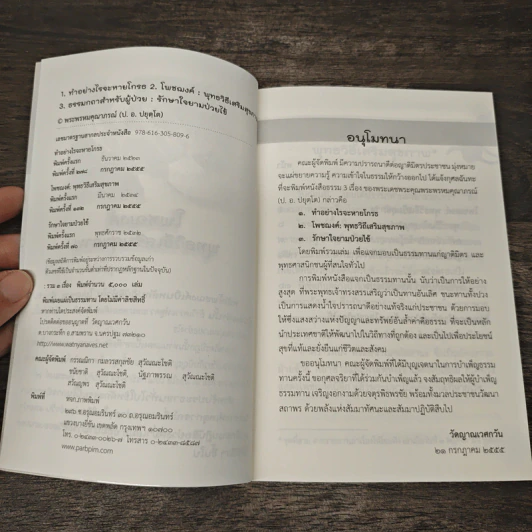 ๑. ทำอย่างไรจะหายโกรธ ๒. โพชฌงค์ : พุทธวิธีเสริมสุขภาพ
๓. ธรรมกถาสำหรับผู้ป่วย : รักษาใจยามป่วยไข้
© พระพรหมคุณาภรณ์ (ป. อ. ปยุตฺโต)
เลขมาตรฐานสากลประจำหนังสือ 978-616-305-809-6
ทำอย่างไรจะหายโกรธ
พิมพ์ครั้งแรก ธันวาคม
กรกฎาคม ๒๕๕๕
โพชฌงค์ : พุทธวิธีเสริมสุขภาพ
พิมพ์ครั้งแรก มีนาคม
กรกฎาคม ๒๕๕๕
รักษาใจยามป่วยไข้
พิมพ์ครั้งแรก พฤศจิกายน
กรกฎาคม ๒๕๕๕
: รวม ๓ เรื่อง พิมพ์จำนวน ๕,๐๐๐ เล่ม
พิมพ์เผยแผ่เป็นธรรมทาน โดยไม่มีค่าลิขสิทธิ์
หากท่านใดประสงค์จัดพิมพ์
โปรดติดต่อขออนุญาตที่ วัดญาณเวศกวัน
ต.บางกระทึก อ.สามพราน จ.นครปฐม ๗๓๒๑๐
http://www.watnyanaves.net
คณะผู้จัดพิมพ์
สุวัณณะโชติ
พิมพ์ที่ หจก.ภาพพิมพ์
ซ.อรุณอมรินทร์ ๓๐ ถ.อรุณอมรินทร์
เขตบางพลัด กรุงเทพฯ ๑๐๗๐๐
www.parbpim.com
อนุโมทนา
คณะผู้จัดพิมพ์ มีความปรารถนาดีต่อญาติมิตรประชาชน มุ่งหมาย
จะแผ่ขยายความรู้ ความเข้าใจในธรรมให้กว้างออกไป ได้แจ้งกุศลฉันทะ
ที่จะพิมพ์หนังสือธรรม 3 เรื่อง ของพระเดชพระคุณพระพรหมคุณาภรณ์
(ป. อ. ปยุตฺโต) กล่าวคือ
๑. ทำอย่างไรจะหายโกรธ
๒. โพชฌงค์: พุทธวิธีเสริมสุขภาพ
๓. รักษาใจยามป่วยไข้
โดยพิมพ์รวมเล่ม เพื่อแจกมอบเป็นธรรมทานแก่ญาติมิตร และ
พุทธศาสนิกชนผู้ที่สนใจทั่วไป
การพิมพ์หนังสือแจกเป็นธรรมทานนั้น นับว่าเป็นการให้อย่าง
สูงสุด ที่พระพุทธเจ้าทรงสรรเสริญว่าเป็นทานอันเลิศ ชนะทานทั้งปวง
เป็นการแสดงน้ำใจปรารถนาดีอย่างแท้จริงแก่ประชาชน ด้วยการมอบ
ให้ซึ่งแสงสว่างแห่งปัญญาและทรัพย์อันล้ำค่าคือธรรม ที่จะเป็นหลัก
นำประเทศชาติให้พัฒนาไปในวิถีทางที่ถูกต้อง และเป็นไปเพื่อประโยชน์
สุขที่แท้และยั่งยืนแก่ชีวิตและสังคม
ขออนุโมทนา คณะผู้จัดพิมพ์ที่ได้มีบุญเจตนาในการบำเพ็ญธรรม
ทานครั้งนี้ ขอกุศลจริยาที่ได้ร่วมกันบำเพ็ญแล้ว จงสัมฤทธิผลให้ผู้บำเพ็ญ
ธรรมทาน เจริญงอกงามด้วยจตุรพิธพรชัย พร้อมทั้งมวลประชาชนวัฒนา
สถาพร ด้วยพลังแห่งสัมมาทัศนะและสัมมาปฏิบัติสืบไป
วัดญาณเวศกวัน
๒๑ กรกฎาคม ๒๕๕๕